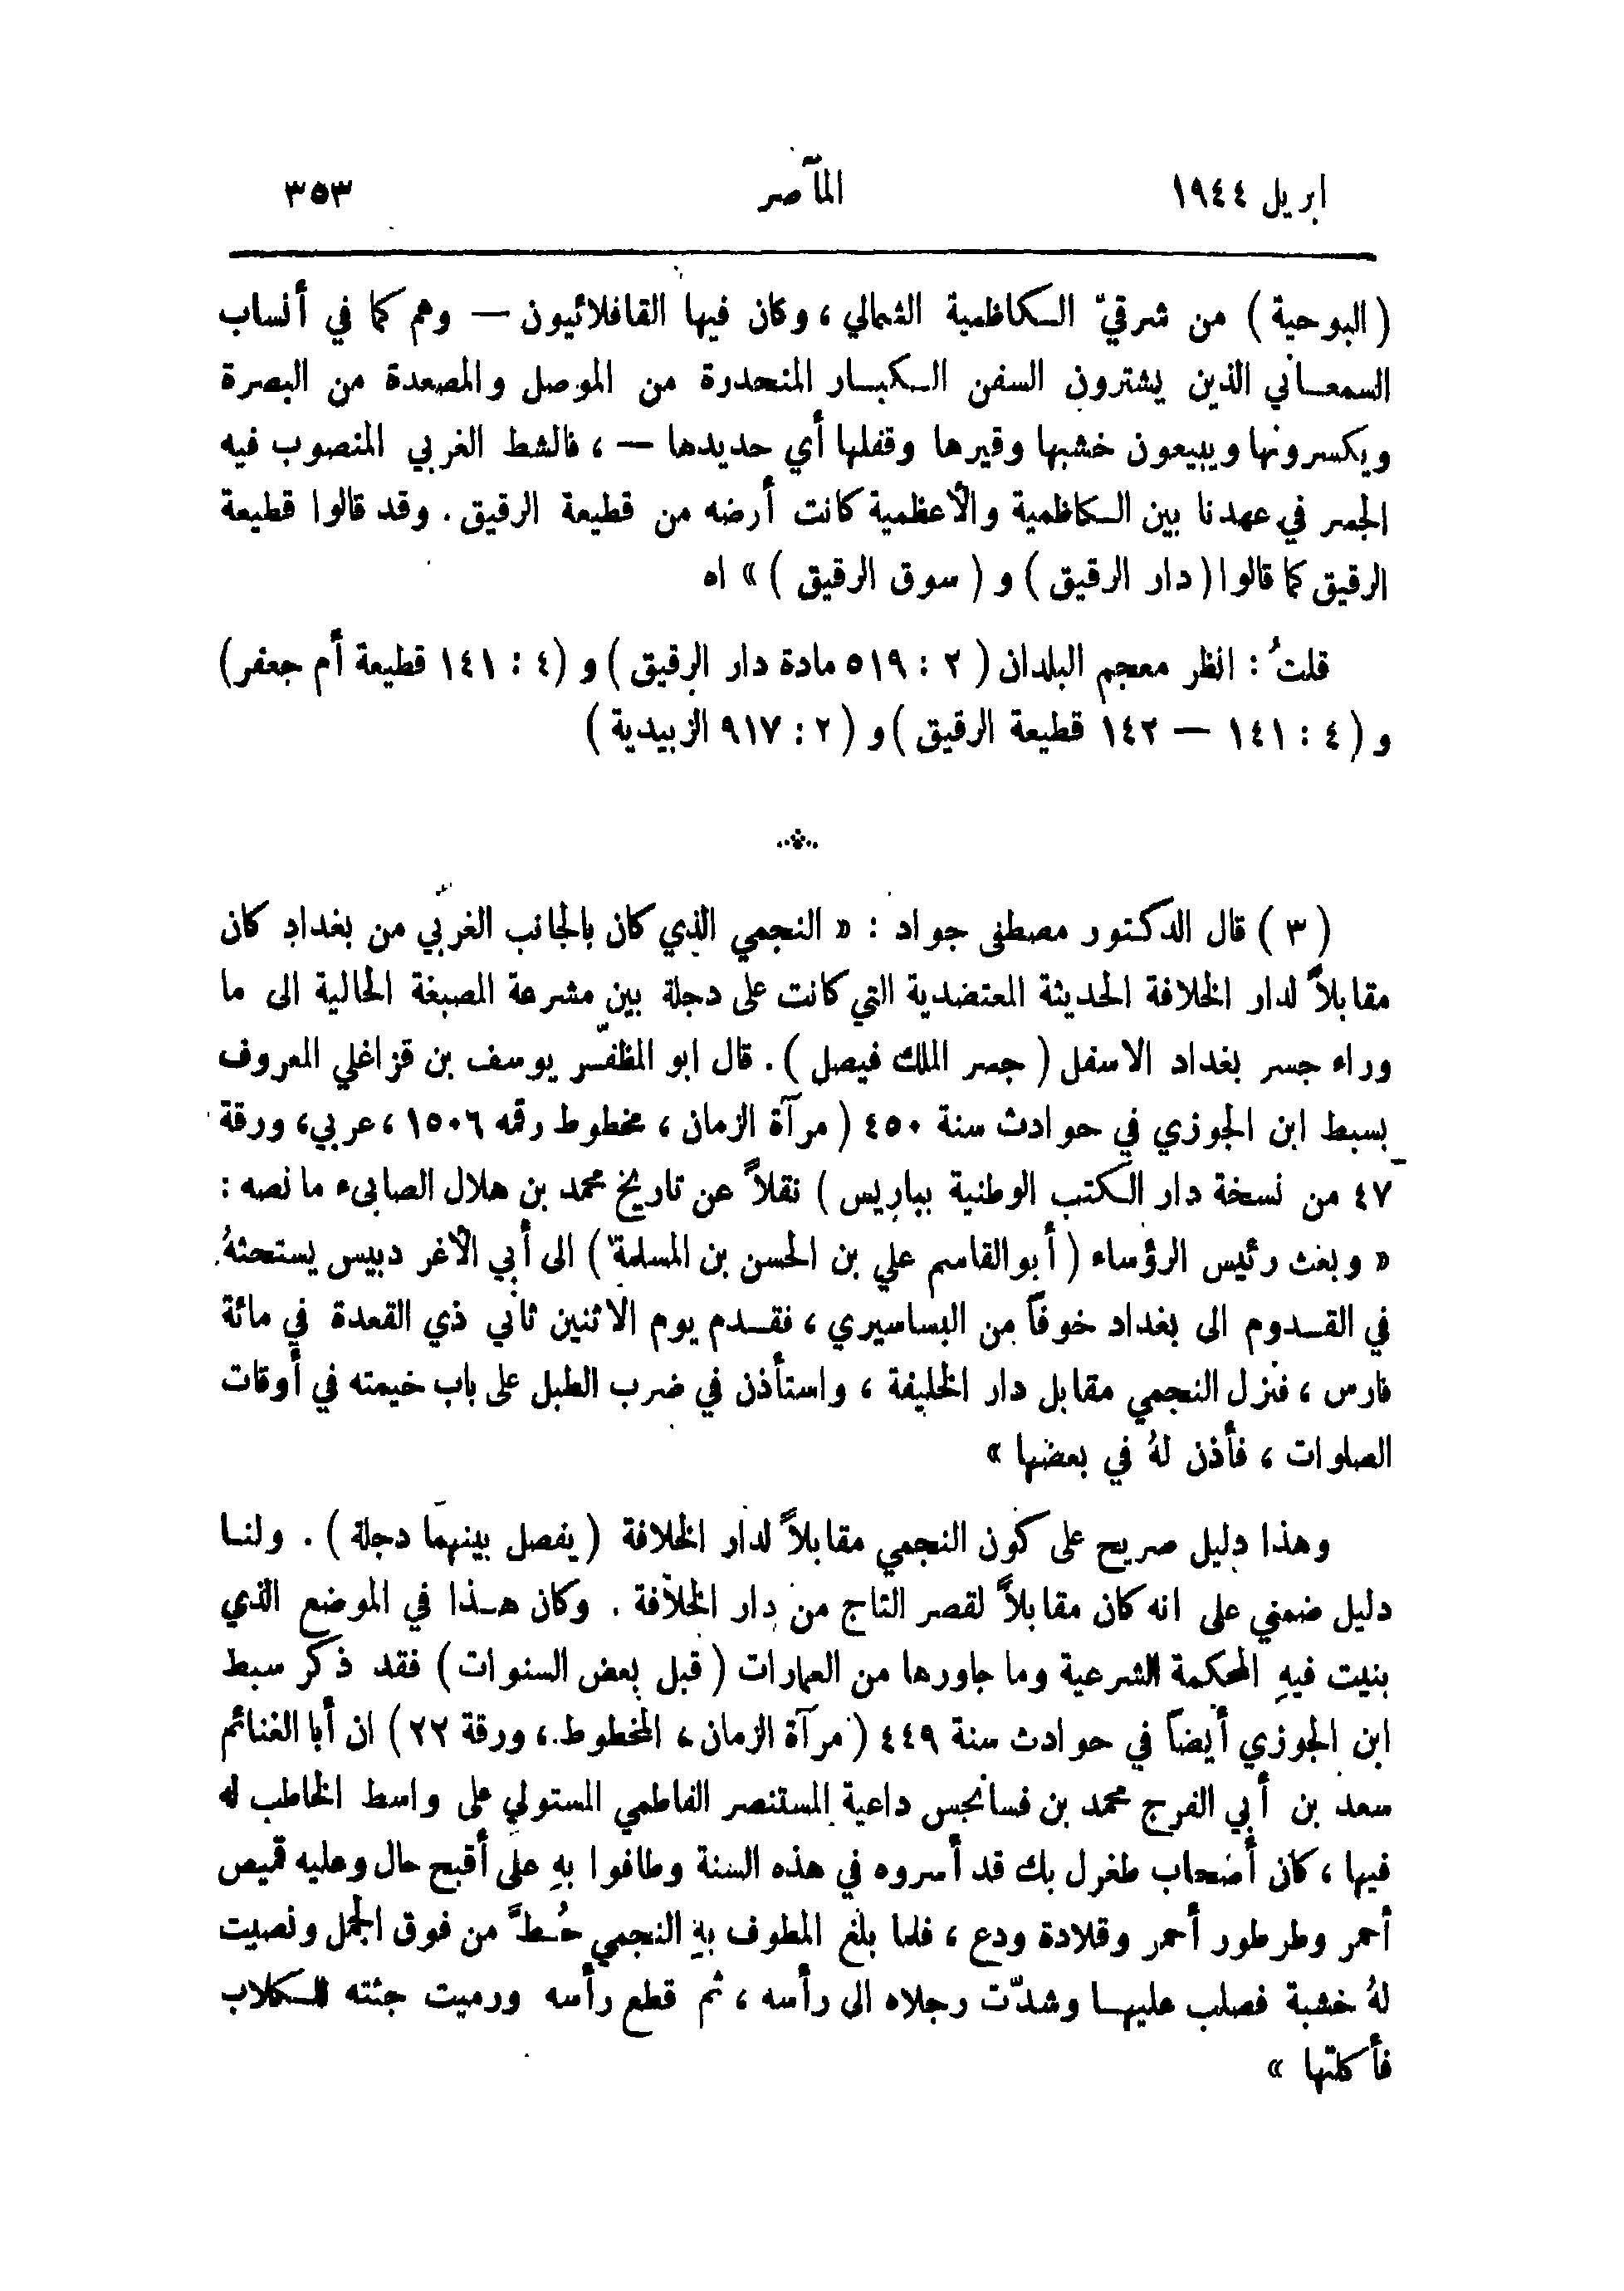 ابريل ١٩٤٤ المآصر ٣٥٣
( البوحية ) من شرقيّ الكاظمية الشمالي ، وكان فيها القافلائيون — وهم كما في أنساب
السمعاني الذين يشترون السفن الكبار المنحدرة من الموصل والمصعدة من البصرة
ويكسرونها ويبيعون خشبها وقيرها وقفلها أي حديدها — ، فالشط الغربي المنصوب فيه
الجسر في عهدنا بين الكاظمية والأعظمية كانت أرضه من قطيعة الرقيق . وقد قالوا قطيعة
الرقيق كما قالوا ( دار الرقيق ) و ( سوق الرقيق ) » اه
قلتُ : انظر معجم البلدان ( ٢ : ٥١٩ مادة دار الرقيق ) و ( ٤ : ١٤١ قطيعة أم جعفر )
و ( ٤ : ١٤١ — ١٤٢ قطيعة الرقيق ) و ( ٢ : ٩١٧ الزبيدية )
( ٣ ) قال الدكتور مصطفى جواد : « النجمي الذي كان بالجانب الغربي من بغداد كان
مقابلاً لدار الخلافة الحديثة المعتضدية التي كانت على دجلة بين مشرعة المصبغة الحالية الى ما
وراء جسر بغداد الاسفل ( جسر الملك فيصل ) . قال ابو المظفّر يوسف بن قزاغلي المعروف
بسبط ابن الجوزي في حوادث سنة ٤٥٠ ( مرآة الزمان ، مخطوط رقمه ١٥٠٦ ، عربي ، ورقة
٤٧ من نسخة دار الكتب الوطنية بباريس ) نقلاً عن تاريخ محمد بن هلال الصابىء ما نصه :
« وبعث رئيس الرؤساء ( أبو القاسم علي بن الحسن بن المسلمة ) الى أبي الأغر دبيس يستحثهُ
في القدوم الى بغداد خوفاً من البساسيري ، فقدم يوم الاثنين ثاني ذي القعدة في مائة
فارس ، فنزل النجمي مقابل دار الخليفة ، واستأذن في ضرب الطبل على باب خيمته في أوقات
الصلوات ، فأذن لهُ في بعضها »
وهذا دليل صريح على كون النجمي مقابلاً لدار الخلافة ( يفصل بينهما دجلة ) . ولنا
دليل ضمني على انه كان مقابلاً لقصر التاج من دار الخلافة . وكان هذا في الموضع الذي
بنيت فيهِ المحكمة الشرعية وما جاورها من العمارات ( قبل بعض السنوات ) فقد ذكر سبط
ابن الجوزي أيضاً في حوادث سنة ٤٤٩ ( مرآة الزمان ، المخطوط ، ورقة ٢٢ ) ان أبا الغنائم
سعد بن أبي الفرج محمد بن فسانجس داعية المستنصر الفاطمي المستولي على واسط الخاطب له
فيها ، كان أصحاب طغرل بك قد أسروه في هذه السنة وطافوا بهِ على أقبح حال وعليه قميص
أحمر وطرطور أحمر وقلادة ودع ، فلما بلغ المطوف بهِ النجمي حُطَّ من فوق الجمل ونصبت
لهُ خشبة فصلب عليها وشدّت رجلاه الى رأسه ، ثم قطع رأسه ورميت جثته للكلاب
فأكلتها »